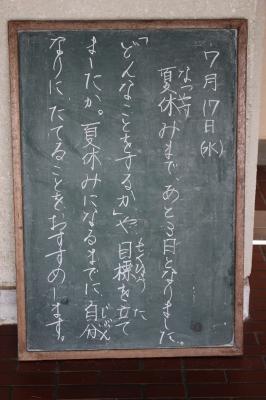 7月17日(水)
夏休みまで、あと3日となりました。
「どんなことをするか」や、目標を立て
ましたか。夏休みになるまでに、自分
なりに、たてることをおすすめします。
なつやす
もくひょう
た
じぶん